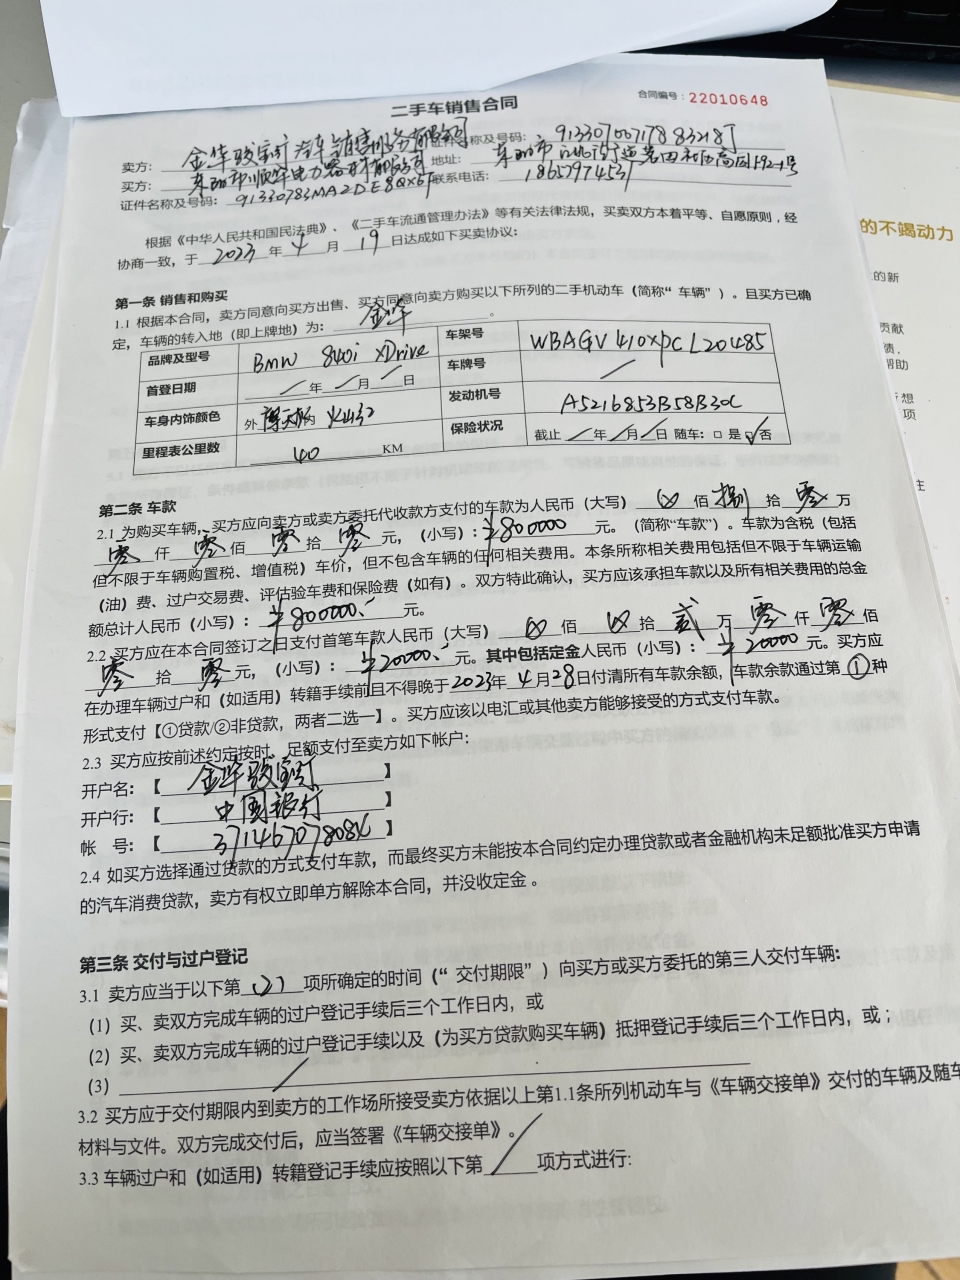 二手车销售合同
合同编号：22010648
卖方： 金华骏宝行汽车销售服务有限公司 证件名称及号码： 91330700717883218J
买方： 东阳市顺华电力器材有限公司 地址： 东阳市江北街道茗田社区高园
证件名称及号码： 91330783MA2DE8QX6F 联系电话： 18657974537
根据《中华人民共和国民法典》、《二手车流通管理办法》等有关法律法规，买卖双方本着平等、自愿原则，经
协商一致，于 2023 年 4 月 19 日达成如下买卖协议：
第一条 销售和购买
1.1 根据本合同，卖方同意向买方出售、买方同意向卖方购买以下所列的二手机动车（简称“车辆”）。且买方已确
定，车辆的转入地（即上牌地）为： 金华 。
品牌及型号 BMW 840i xDrive 车架号 WBAGV410XPCL20485
首登日期 / 年 / 月 / 日 车牌号 /
车身内饰颜色 外 摩天 内 火山红 发动机号 A5216853B58B30C
里程表公里数 40 KM 保险状况 截止 / 年 / 月 / 日 随车：□ 是 ☑ 否
第二条 车款
2.1 为购买车辆，买方应向卖方或卖方委托代收款方支付的车款为人民币（大写） ⊗ 佰 捌 拾 零 万
零 仟 零 佰 零 拾 零 元，（小写）：¥800000 元。（简称“车款”）。车款为含税（包括
但不限于车辆购置税、增值税）车价，但不包含车辆的任何相关费用。本条所称相关费用包括但不限于车辆运输
（油）费、过户交易费、评估验车费和保险费（如有）。双方特此确认，买方应该承担车款以及所有相关费用的总金
额总计人民币（小写）： ¥800000.- 元。
2.2 买方应在本合同签订之日支付首笔车款人民币（大写） ⊗ 佰 ⊗ 拾 贰 万 零 仟 零 佰
零 拾 零 元，（小写）： ¥20000.- 元。其中包括定金人民币（小写）： ¥20000 元。买方应
在办理车辆过户和（如适用）转籍手续前且不得晚于 2023 年 4 月 28 日付清所有车款余额，车款余款通过第 ① 种
形式支付【①贷款/②非贷款，两者二选一】。买方应该以电汇或其他卖方能够接受的方式支付车款。
2.3 买方应按前述约定按时、足额支付至卖方如下帐户：
开户名：【 金华骏宝行 】
开户行：【 中国银行 】
帐 号：【 】
2.4 如买方选择通过贷款的方式支付车款，而最终买方未能按本合同约定办理贷款或者金融机构未足额批准买方申请
的汽车消费贷款，卖方有权立即单方解除本合同，并没收定金 。
第三条 交付与过户登记
3.1 卖方应当于以下第 (2) 项所确定的时间（“ 交付期限”）向买方或买方委托的第三人交付车辆：
(1) 买、卖双方完成车辆的过户登记手续后三个工作日内，或
(2) 买、卖双方完成车辆的过户登记手续以及（为买方贷款购买车辆）抵押登记手续后三个工作日内，或；
(3) /
3.2 买方应于交付期限内到卖方的工作场所接受卖方依据以上第1.1条所列机动车与《车辆交接单》交付的车辆及随车
材料与文件。双方完成交付后，应当签署《车辆交接单》。
3.3 车辆过户和（如适用）转籍登记手续应按照以下第 / 项方式进行：
的不竭动力
的新
贡献
帮助
项